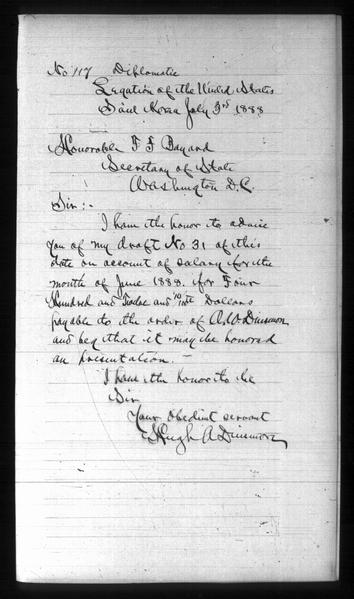 No 117 Diplomatic
Legation of the United States
Söul Korea July 3rd 1888
Honorable T F Bayard
Secretary of State
Washington D.C.
Sir:-
I have the honor to advise
you of my draft No. 31 of this
date on account of salary for the
month of June 1888. for Four
Hundred and Twelve and Dollars
payable to the order of A.W. Dinsmore
and beg that it may be honored
on presentation.-
I have the honor to be
Sir
Your obedient servant
Hugh A Dinsmore